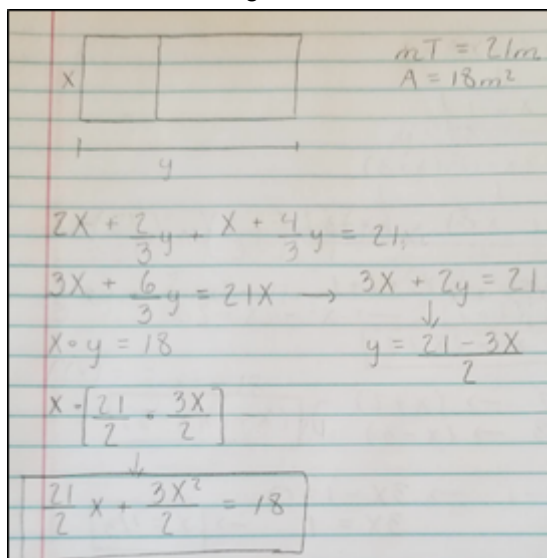 mT = 21m
A = 18m²
x
y
2X + 2/3 y + X + 4/3 y = 21
3X + 6/3 y = 21X → 3X + 2y = 21
↓
x • y = 18
y = 21 - 3X / 2
X • [21/2 - 3X/2]
↓
21/2 X + 3X²/2 = 18